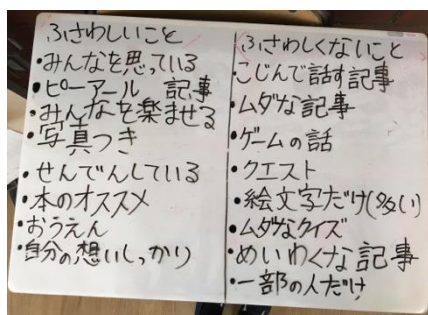 ふさわしいこと
・みんなを思っている
・ピーアール 記事
・みんなを楽ませる
・写真つき
・せんでんしている
・本のオススメ
・おうえん
・自分の想いしっかり
ふさわしくないこと
・こじんで話す記事
・ムダな記事
・ゲームの話
・クエスト
・絵文字だけ(多い)
・ムダなクイズ
・めいわくな記事
・一部の人だけ